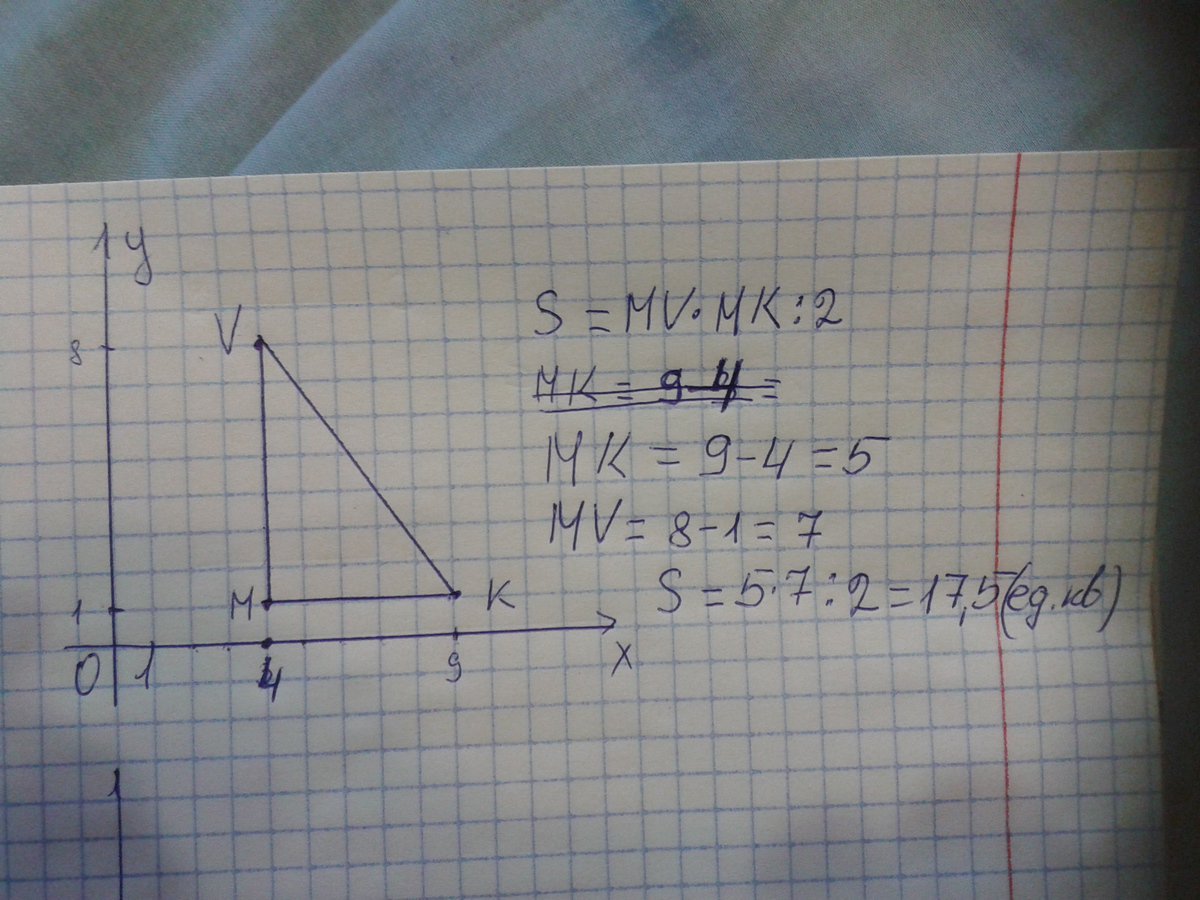 y
V
8
S = MV·MK:2
MK = 9-4 =
MK = 9-4 = 5
MV = 8-1 = 7
S = 5·7:2 = 17,5(ед.кв)
1
M
K
0
1
4
9
x